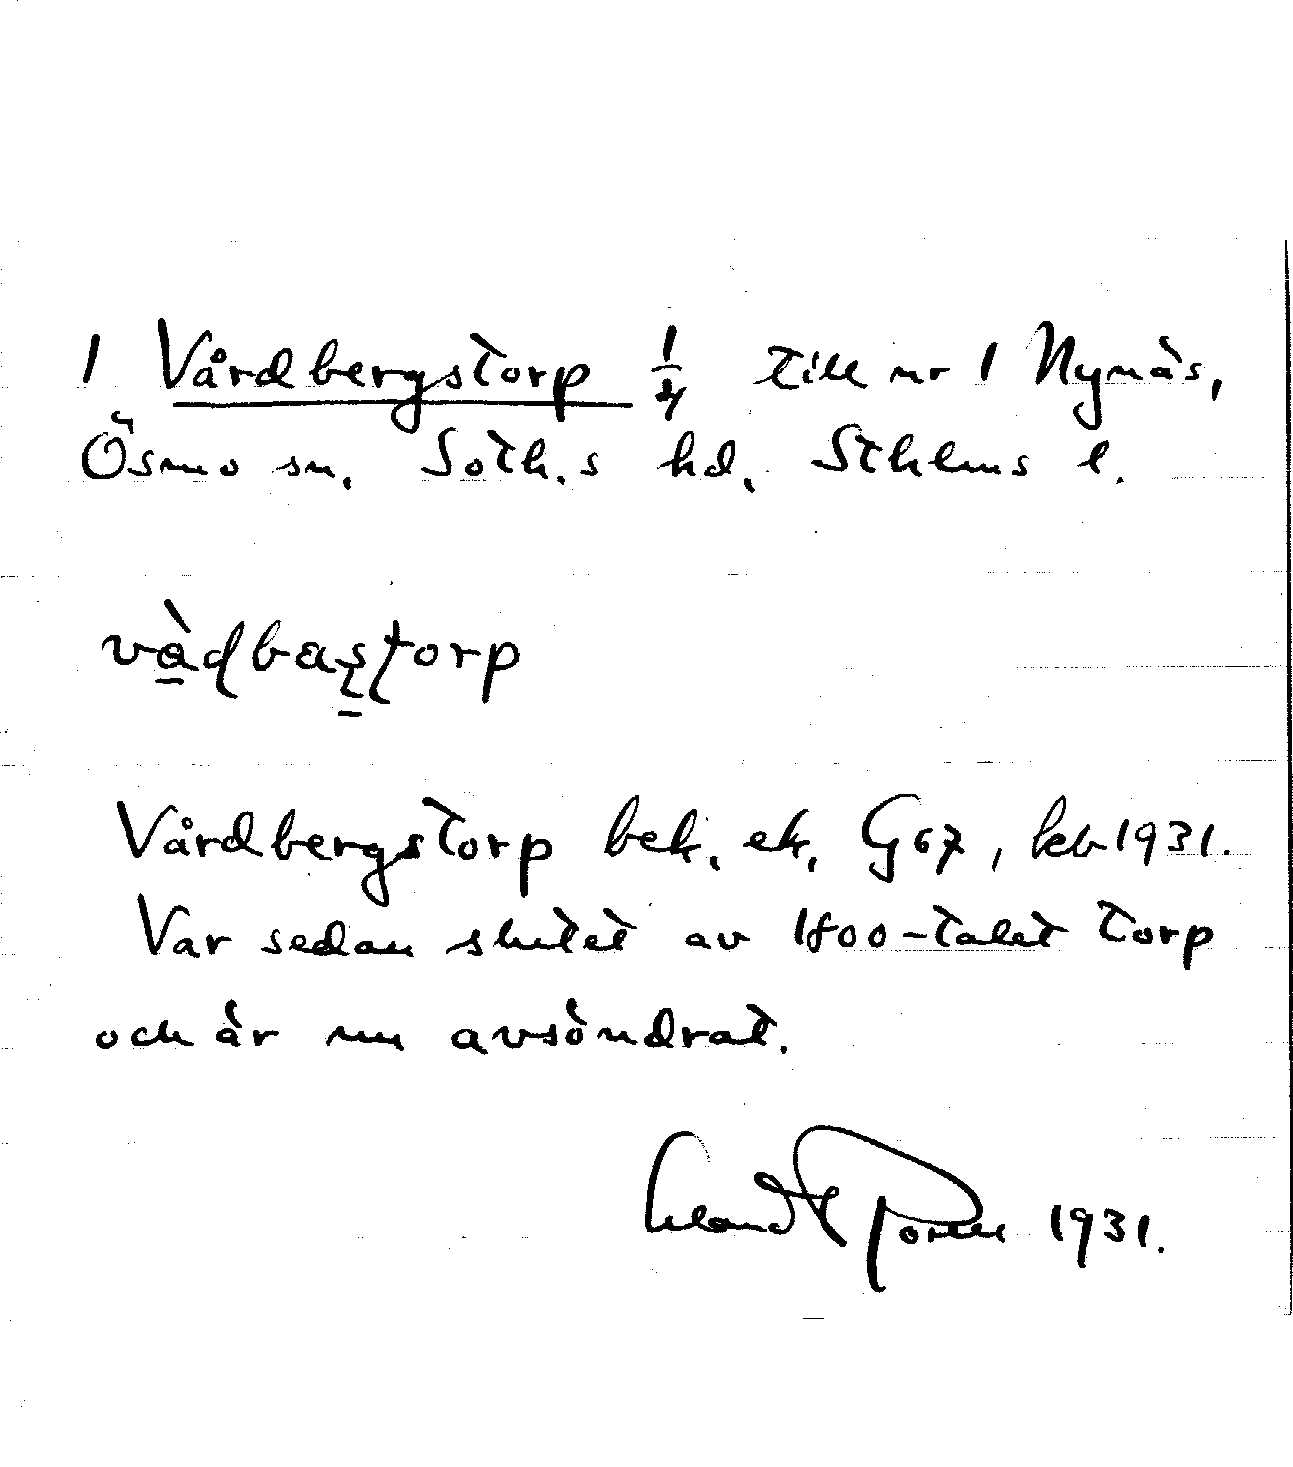 1 Vårdbergstorp 1/4 till nr 1 Nynäs,
Ösmo sn. Soth.s hd. Sthlms l.
vàdbaștorp
Vårdbergstorp bek. ek. G67, leb 1931.
Var sedan slutet av 1800-talet torp
och är nu avsöndrat.
1931.